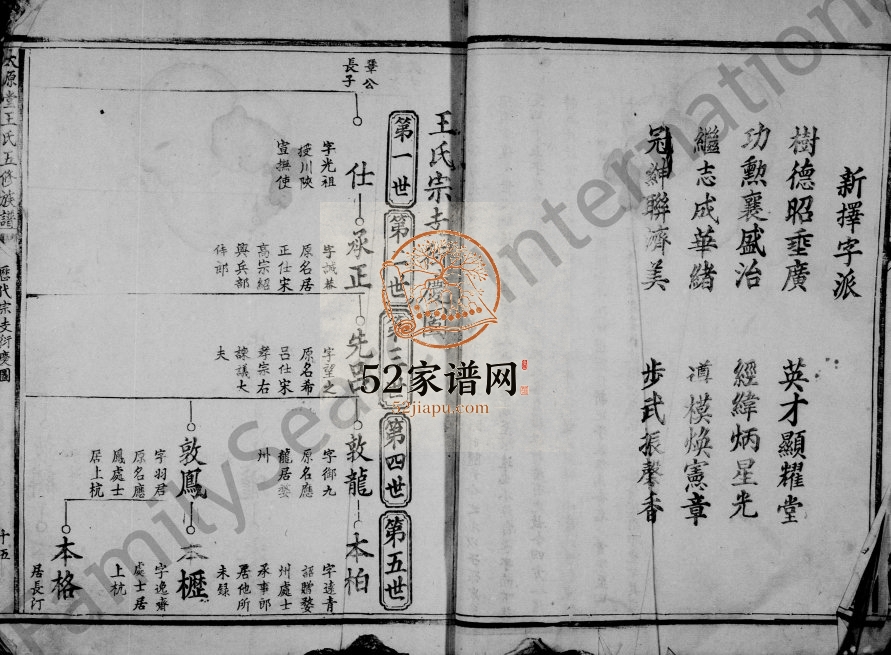 新擇字派
樹德昭垂廣 英才顯耀堂
功勳襄盛治 經緯炳星光
繼志成華緒 遵模煥憲章
冠紳聯濟美 步武振馨香
王氏宗支衍慶圖
第一世
第二世
第三世
第四世
第五世
肇公
長子
仕
字光祖
授川陝
宣撫使
承正
字誠
原名居
正仕宋
高宗紹
興兵部
侍郎
先呂
字望之
原名希
呂仕宋
孝宗右
諫議大
夫
敦龍
字御九
原名應
龍居婺
州
敦鳳
字羽君
原名應
鳳處士
居上杭
本柏
字遠青
詔贈婺
州處士
承事郎
居他所
未錄
本櫪
字逸齋
處士居
上杭
本格
居長汀
太原堂王氏五修族譜
歷代宗支衍慶圖
十五
52家谱网
52jiapu.com
FamilySearch International